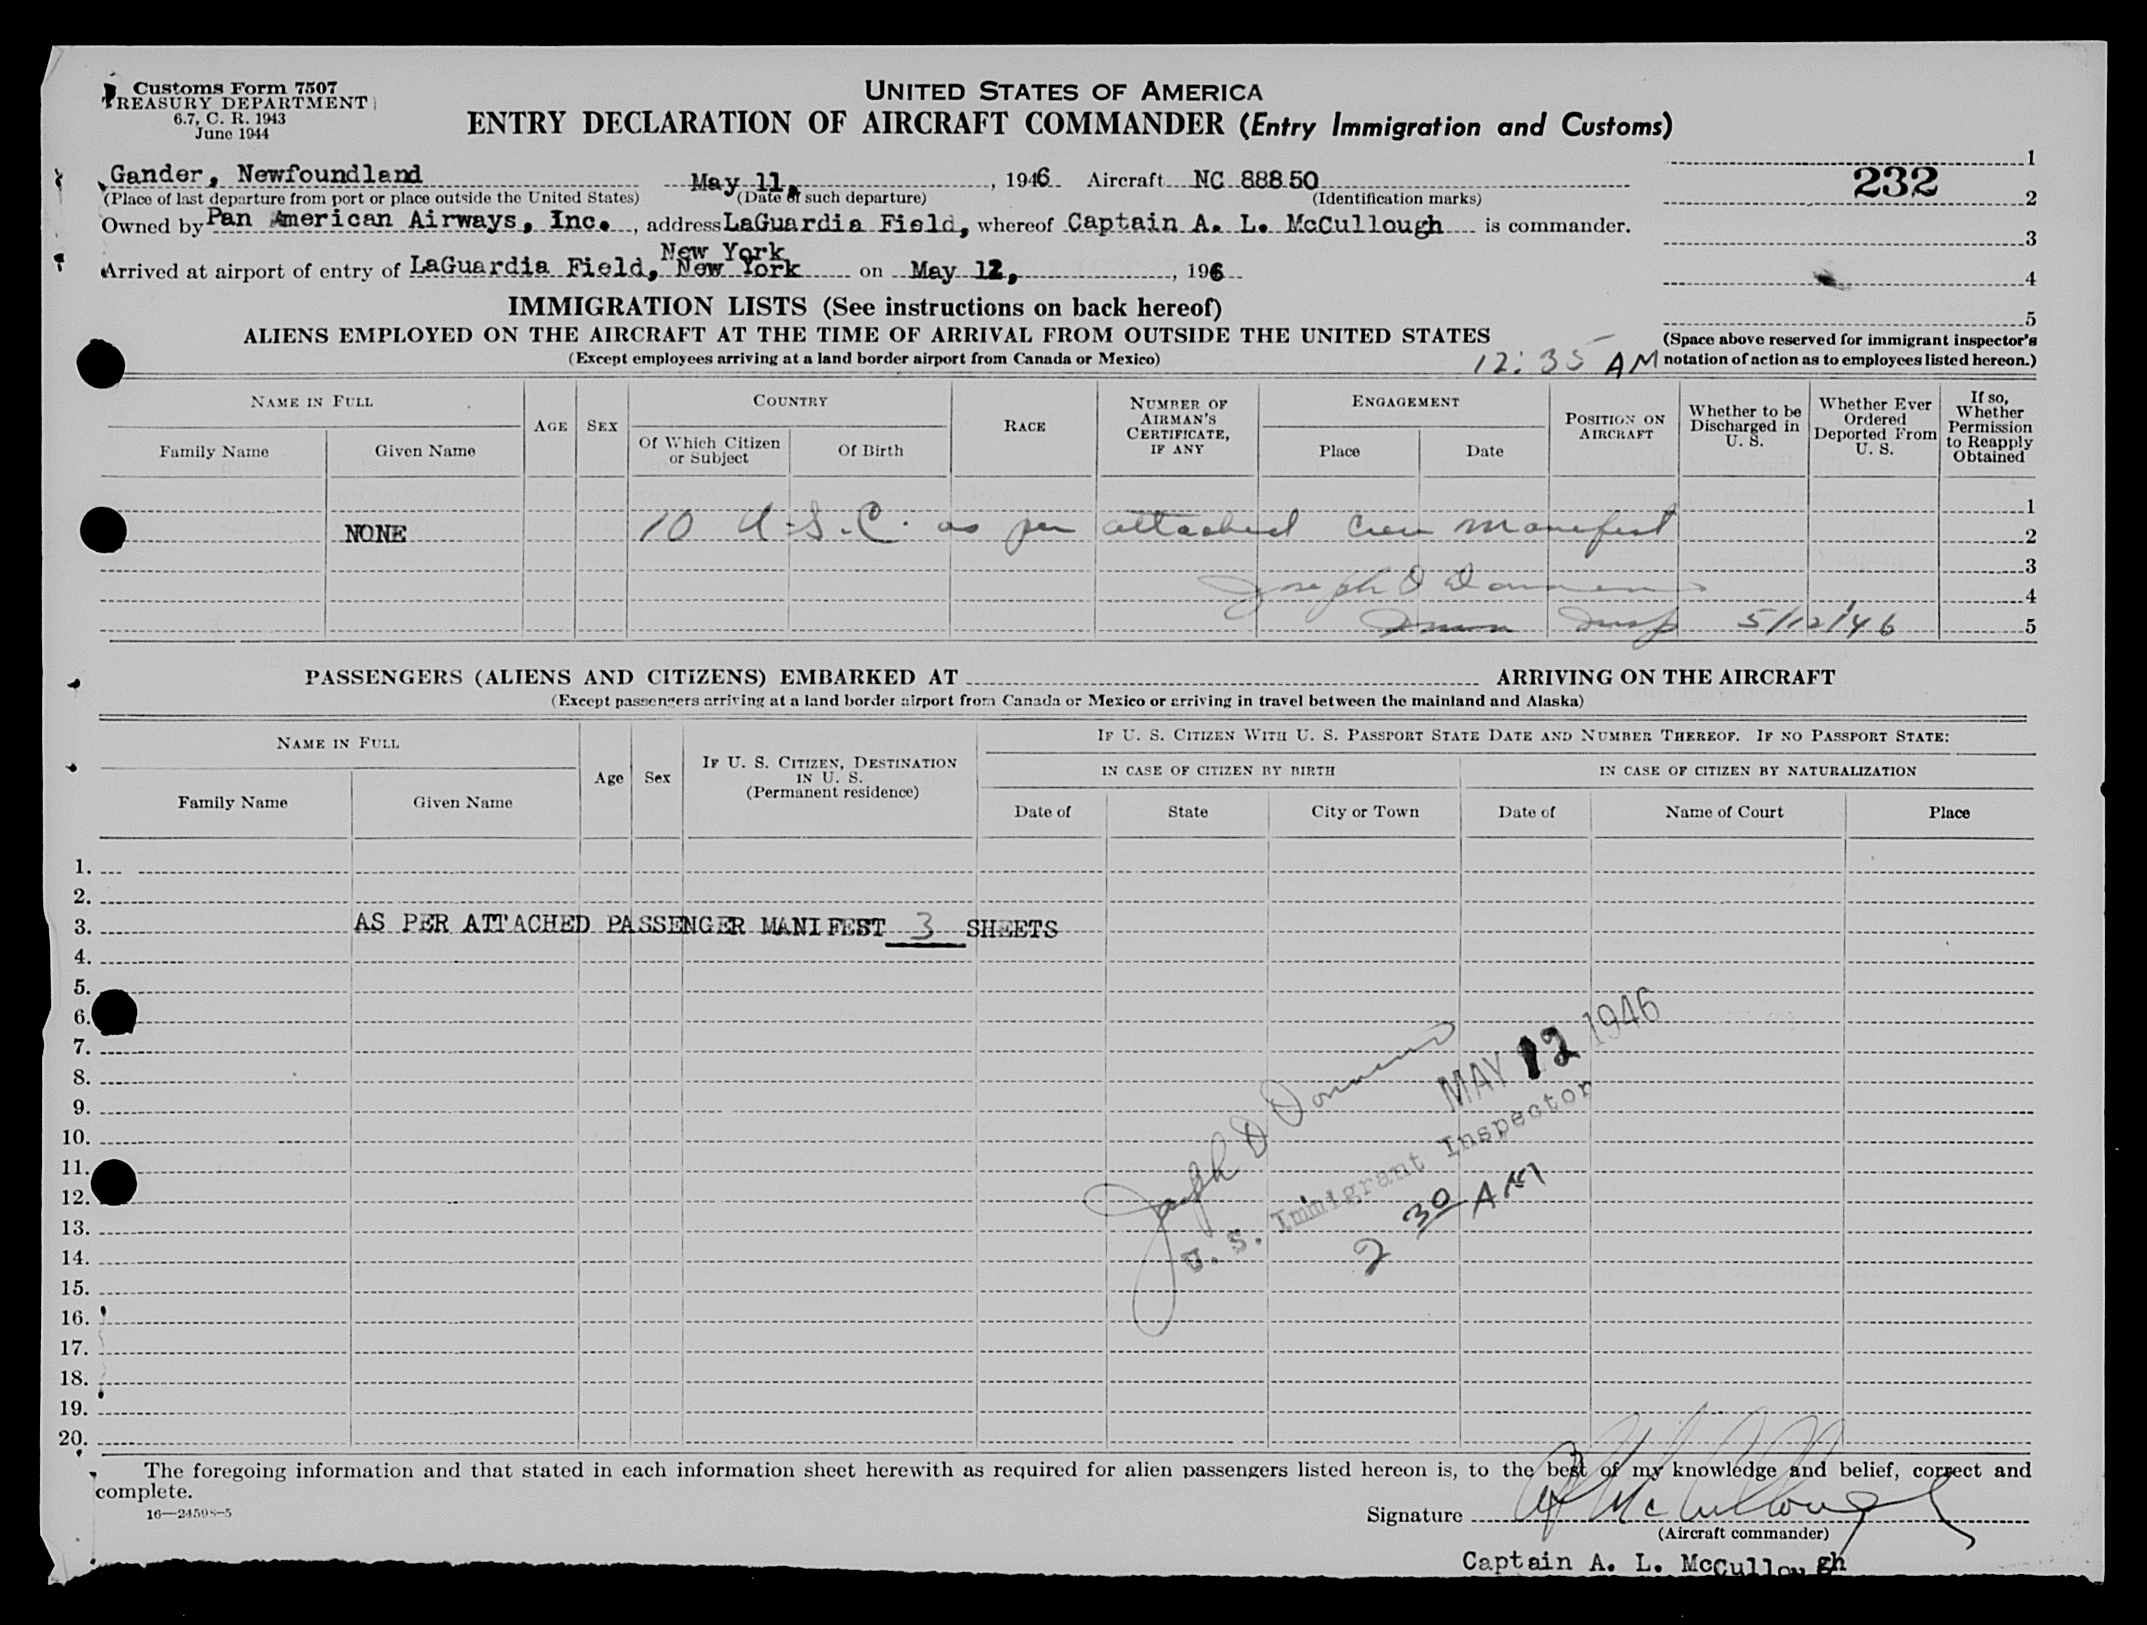 Customs Form 7507
TREASURY DEPARTMENT
6.7, C. R. 1943
June 1944
UNITED STATES OF AMERICA
ENTRY DECLARATION OF AIRCRAFT COMMANDER (Entry Immigration and Customs)
Gander, Newfoundland May 11, 1946 Aircraft NC 88850
(Place of last departure from port or place outside the United States) (Date of such departure) (Identification marks)
Owned by Pan American Airways, Inc., address LaGuardia Field, whereof Captain A. L. McCullough is commander.
New York
Arrived at airport of entry of LaGuardia Field, New York on May 12, 196
1
232
2
3
4
5
(Space above reserved for immigrant inspector's notation of action as to employees listed hereon.)
IMMIGRATION LISTS (See instructions on back hereof)
ALIENS EMPLOYED ON THE AIRCRAFT AT THE TIME OF ARRIVAL FROM OUTSIDE THE UNITED STATES
(Except employees arriving at a land border airport from Canada or Mexico)
12:35 AM
NAME IN FULL
Family Name
Given Name
AGE
SEX
COUNTRY
Of Which Citizen or Subject
Of Birth
RACE
NUMBER OF AIRMAN'S CERTIFICATE, IF ANY
ENGAGEMENT
Place
Date
POSITION ON AIRCRAFT
Whether to be Discharged in U. S.
Whether Ever Ordered Deported From U. S.
If so, Whether Permission to Reapply Obtained
1
NONE 10 U.S.C. as per attached crew manifest 2
3
Joseph D 4
Immn Insp 5/12/46 5
PASSENGERS (ALIENS AND CITIZENS) EMBARKED AT ARRIVING ON THE AIRCRAFT
(Except passengers arriving at a land border airport from Canada or Mexico or arriving in travel between the mainland and Alaska)
NAME IN FULL
Family Name
Given Name
Age
Sex
IF U. S. CITIZEN, DESTINATION IN U. S.
(Permanent residence)
IF U. S. CITIZEN WITH U. S. PASSPORT STATE DATE AND NUMBER THEREOF. IF NO PASSPORT STATE:
IN CASE OF CITIZEN BY BIRTH
IN CASE OF CITIZEN BY NATURALIZATION
Date of
State
City or Town
Date of
Name of Court
Place
1.
2.
3. AS PER ATTACHED PASSENGER MANIFEST 3 SHEETS
4.
5.
6.
7.
8.
9.
10.
11.
12.
13.
14.
15.
16.
17.
18.
19.
20.
MAY 12 1946
Joseph D
U. S. Immigrant Inspector
2 30 AM
The foregoing information and that stated in each information sheet herewith as required for alien passengers listed hereon is, to the best of my knowledge and belief, correct and
complete.
16—24598-5
Signature A L McCullough
(Aircraft commander)
Captain A. L. McCullough